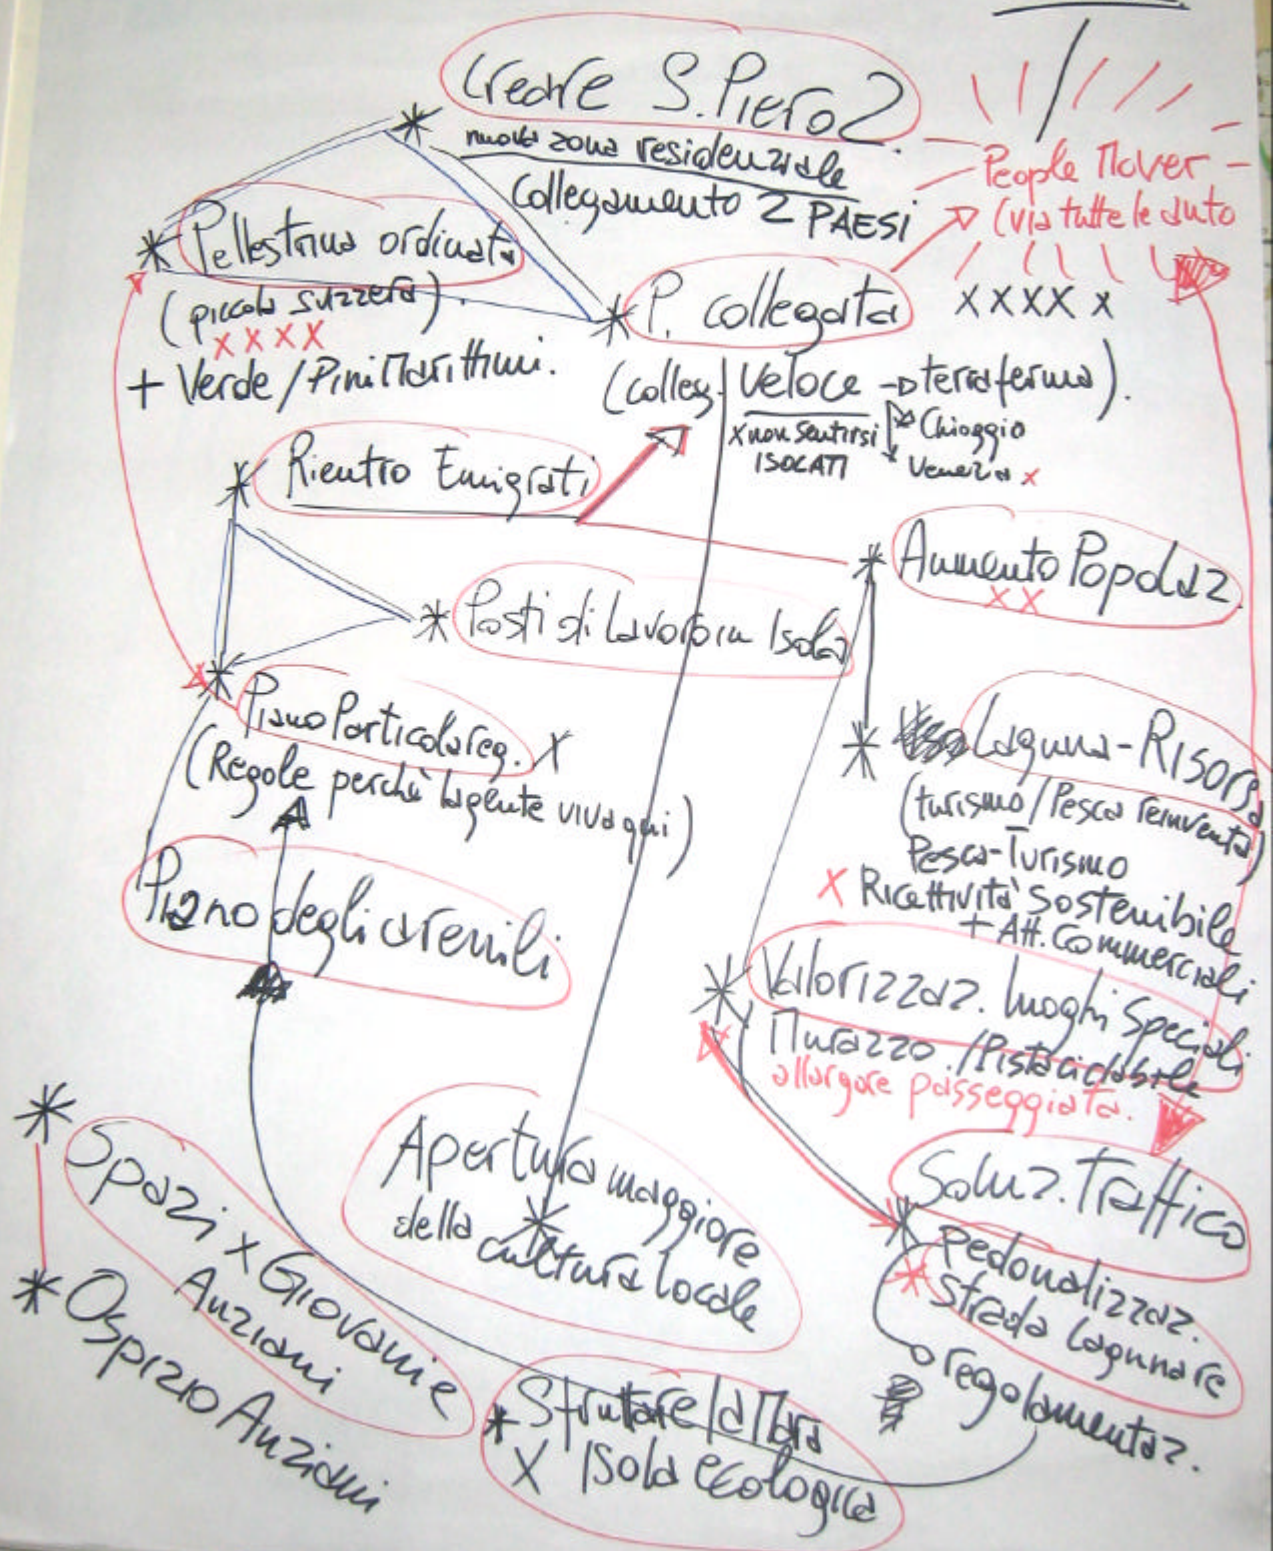 Creare S. Piero 2.
nuova zona residenziale
Collegamento 2 PAESI
People Mover
(via tutte le auto
Pellestrina ordinata
(piccola suzzera).
X X X X
+ Verde / Pini Marittimi.
P. collegata
X X X X X
(colleg. veloce → terraferma).
x non sentirsi
ISOLATI
Chioggia
Venezia x
Rientro Emigrati
Aumento Popolaz.
X X
Posti di Lavoro in Isola
Piano Particolareg. X
(Regole perchè la gente viva qui)
Laguna - Risorsa
(turismo / Pesca reinventa)
Pesca-Turismo
X Ricettività Sostenibile
+ Att. Commerciali
Piano degli arenili
Valorizzaz. luoghi Speciali
Murazzo. / Pista ciclabile
allargare passeggiata.
Soluz. Traffico
Pedonalizzaz.
Strada lagunare
regolamentaz.
Apertura maggiore
della cultura locale
Spazi x Giovani e
Anziani
Ospizio Anziani
Sfruttare la Mara
X Isola ecologica